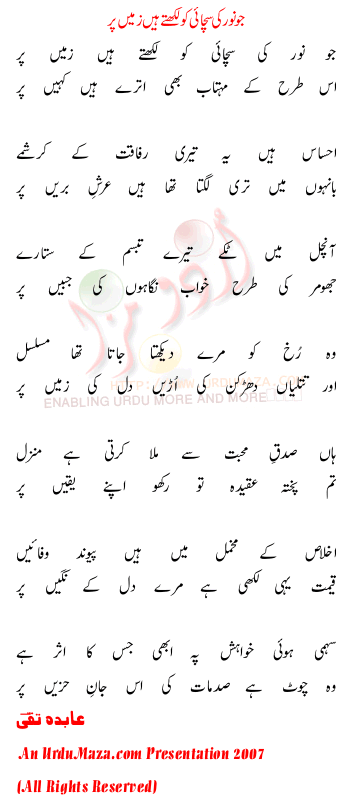 جو نور کی سچائی کو لکھتے ہیں زمیں پر
جو نور کی سچائی کو لکھتے ہیں زمیں پر
اس طرح کے مہتاب بھی اترے ہیں کہیں پر
احساس ہیں یہ تیری رفاقت کے کرشمے
بانہوں میں تری لگتا تھا ہیں عرشِ بریں پر
آنچل میں ٹکے تیرے تبسم کے ستارے
جھومر کی طرح خواب نگاہوں کی جبیں پر
وہ رُخ کو مرے دیکھتا جاتا تھا مسلسل
اور تتلیاں دھڑکن کی اُڑیں دل کی زمیں پر
ہاں صدقِ محبت سے ملا کرتی ہے منزل
تم پختہ عقیدہ تو رکھو اپنے یقیں پر
اخلاص کے مخمل میں ہیں پیوند وفائیں
قیمت یہی لکھی ہے مرے دل کے نگیں پر
سہمی ہوئی خواہش پہ ابھی جس کا اثر ہے
وہ چوٹ ہے صدمات کی اس جانِ حزیں پر
عابدہ تقی
اردو مزا
HTTP://WWW.URDUMAZA.COM
ENABLING URDU MORE AND MORE
.An UrduMaza.com Presentation 2007
(.All Rights Reserved)